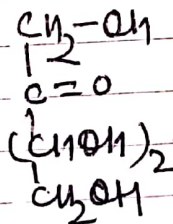 CH2-OH
C=O
(CHOH)2
CH2OH